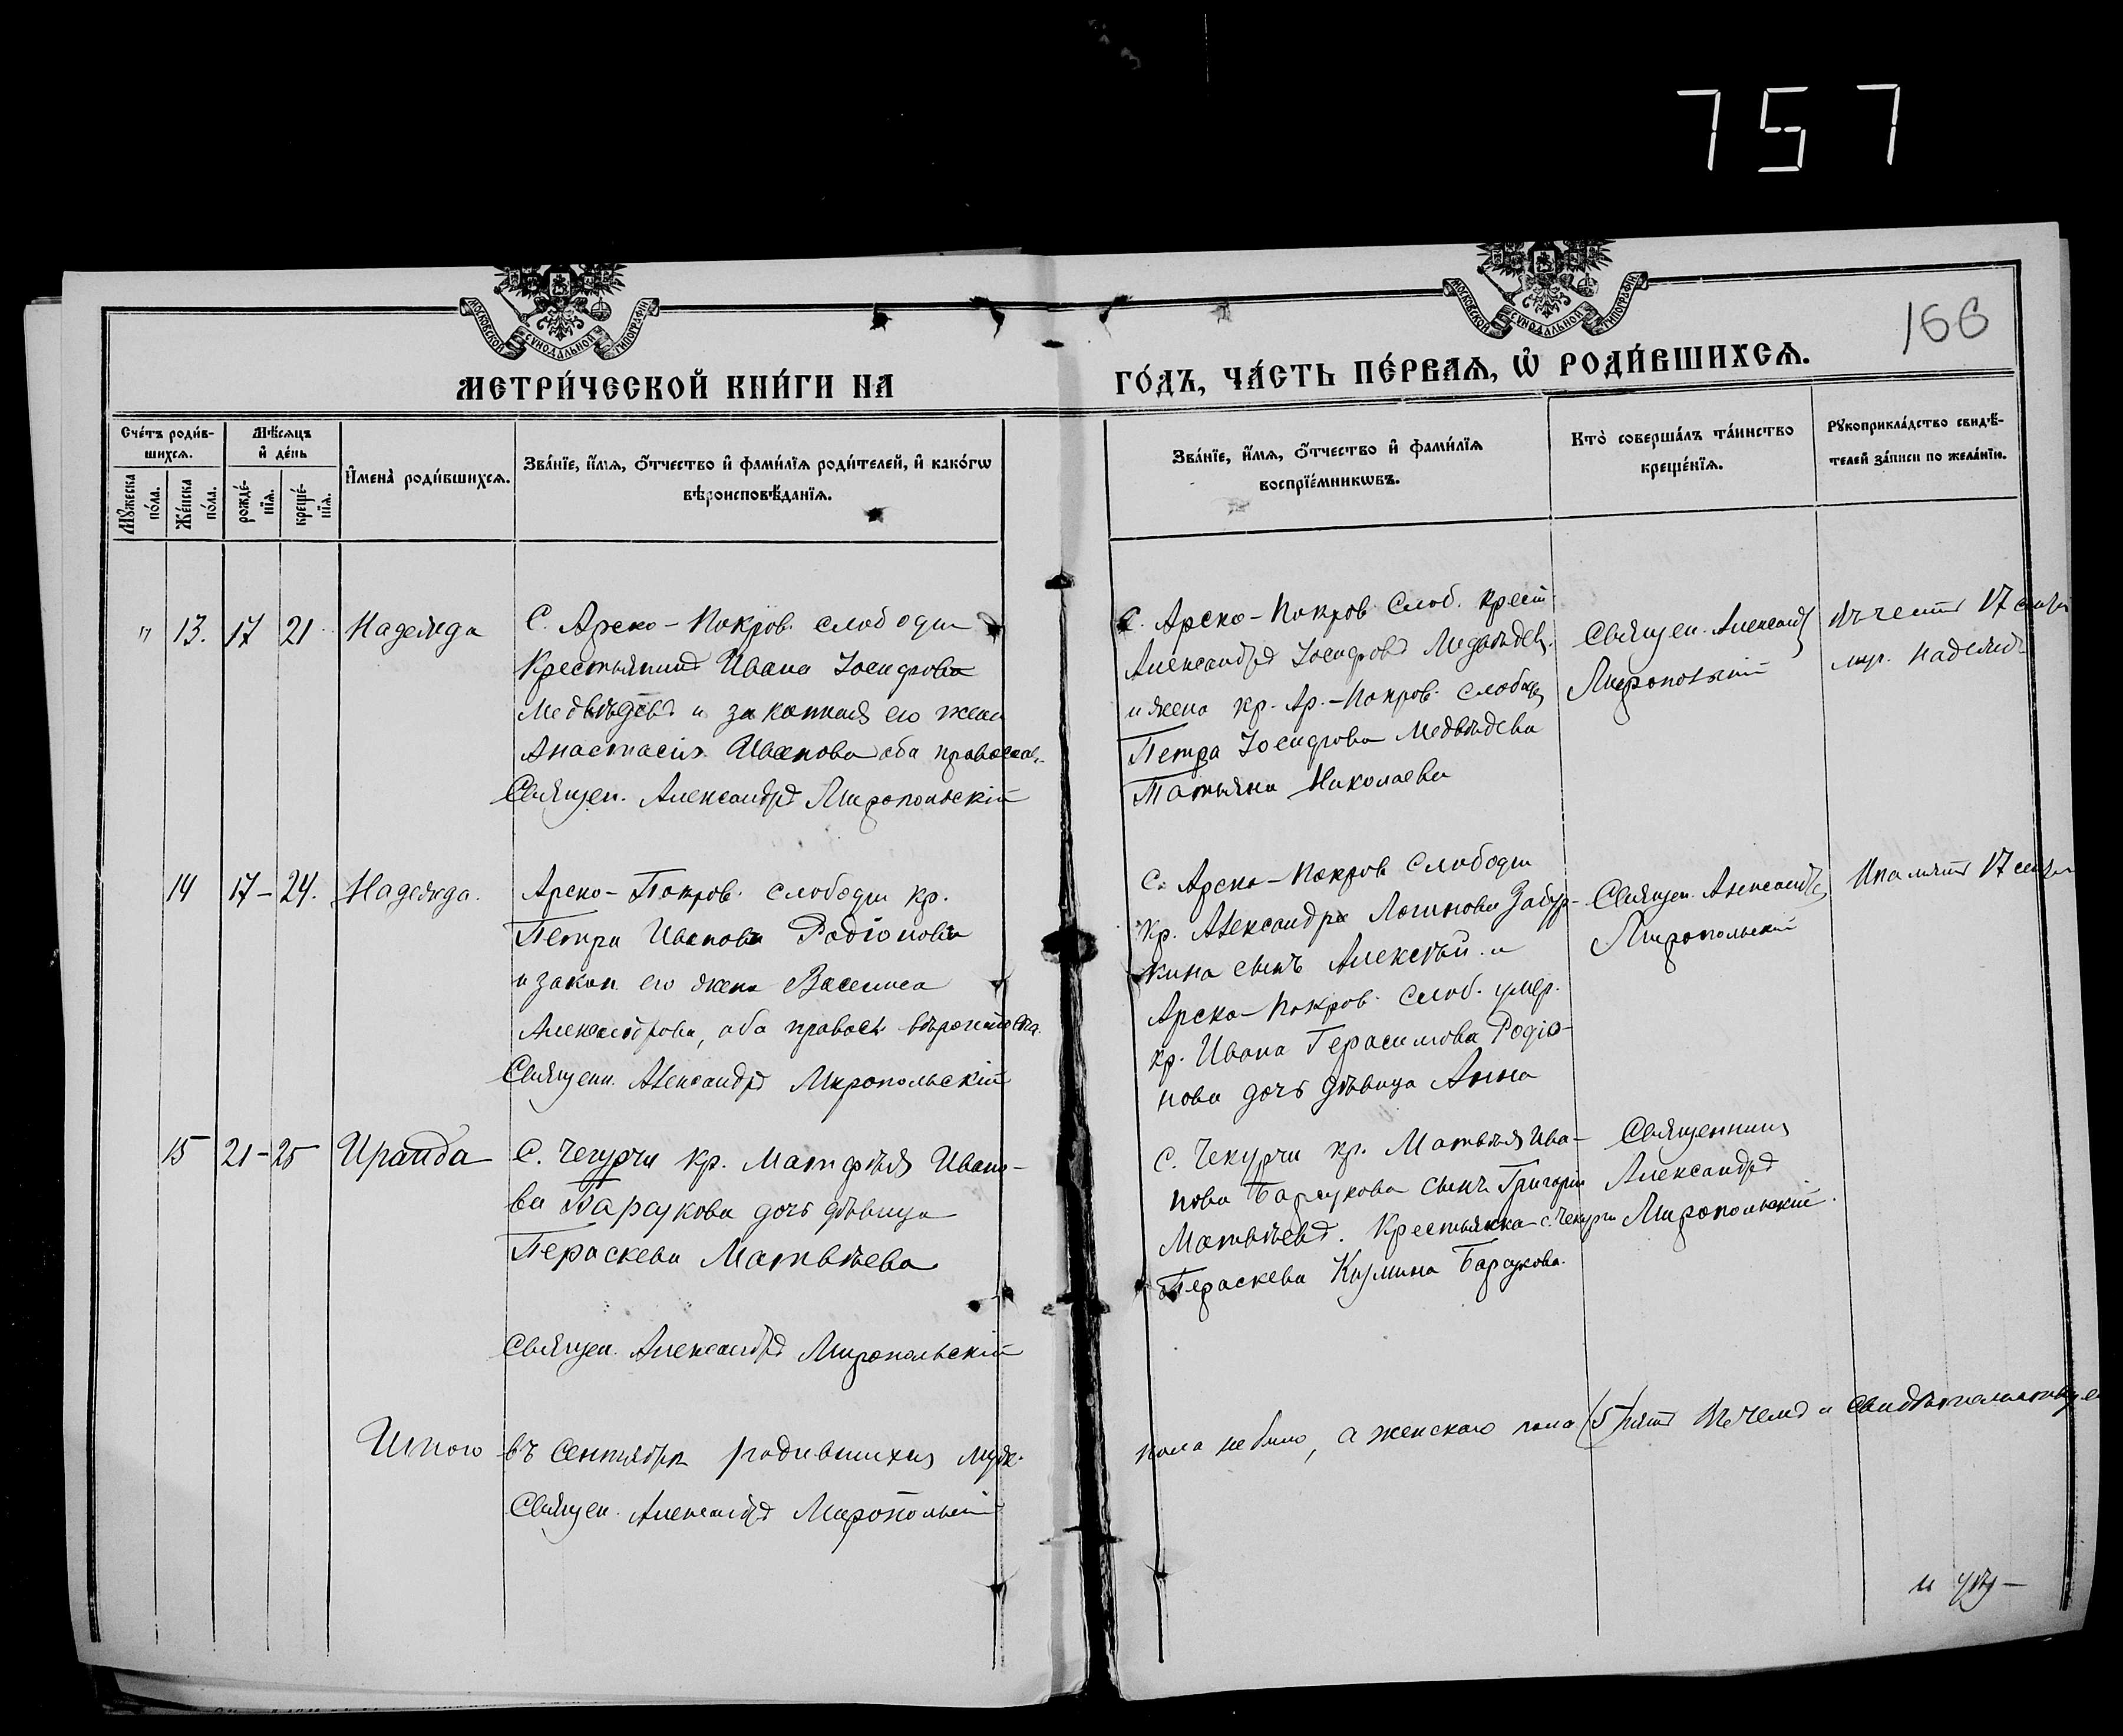 757
166
МОСКОВСКОЙ СѴНОДАЛЬНОЙ ТИПОГРАФІИ
МОСКОВСКОЙ СѴНОДАЛЬНОЙ ТИПОГРАФІИ
МЕТРИ́ЧЕСКОЙ КНИ́ГИ НА
ГО́ДЪ, ЧА́СТЬ ПЕ́РВАѦ, Ѡ҆ РОДИ́ВШИХСѦ.
Сче́тъ роди́в-
шихсѧ.
Мꙋ́жеска по́ла.
Же́нска по́ла.
Мѣ́сѧцъ
и҆ де́нь
рожде́-нїѧ.
креще́-нїѧ.
И҆мена̀ роди́вшихсѧ.
Зва́нїе, и҆́мѧ, ѻ҆́тчество и҆ фами́лїѧ роди́телей, и҆ како́гѡ
вѣроисповѣ́данїѧ.
Зва́нїе, и҆́мѧ, ѻ҆́тчество и҆ фами́лїѧ
воспрїе́мникѡвъ.
Кто̀ соверша́лъ та́инство
креще́нїѧ.
Рꙋкоприкла́дство свидѣ́-
телей за́писи по жела́нїю.
" 13. 17 21 Надежда
С. Арско-Покров. слободы
Крестьянинъ Иванъ Іосифовъ
Медвѣдевъ и законная его жена
Анастасія Иванова оба православ.
Священ. Александръ Миропольскій
С. Арско-Покров Слоб. крест.
Александръ Іосифовъ Медвѣдев.
и жена кр. Ар.-Покров. слободы
Петра Іосифова Медвѣдева
Татьяна Николаева
Священ. Александръ
Миропольскій
Въ честь 17 сентяб
муч. Надежд
14 17-24. Надежда.
Арско-Покров. слободы кр.
Петръ Ивановъ Родіоновъ
и закон. его жена Васса
Александрова, оба правосл
Священн. Александръ Миропольскій
С. Арско-Покров Слободы
кр. Александра Логинова Забур-
кина сынъ Алексѣй. и
Арско-Покров. Слоб. умер.
кр. Ивана Герасимова Родіо-
нова дочь дѣвица Анна
Священ. Александръ
Миропольскій
17 сентяб
15 21-25 Ираида
С. Чекурчи кр. Матфѣя Ивано-
ва Барсукова дочь дѣвица
Параскева Матвѣева
Священ. Александръ Миропольскій
С. Чекурчи кр. Матвѣя Ива-
нова Барсукова сынъ Григорій
Матвѣевъ. Крестьянка с. Чекурчи
Параскева Кузмина Барсукова.
Священникъ
Александръ
Миропольскій.
Итого въ Сентябрѣ родившихся муж.
пола не было, а женскаго пола (5) пять въ чемъ и свидѣтельствуем
Священ. Александръ Миропольскій